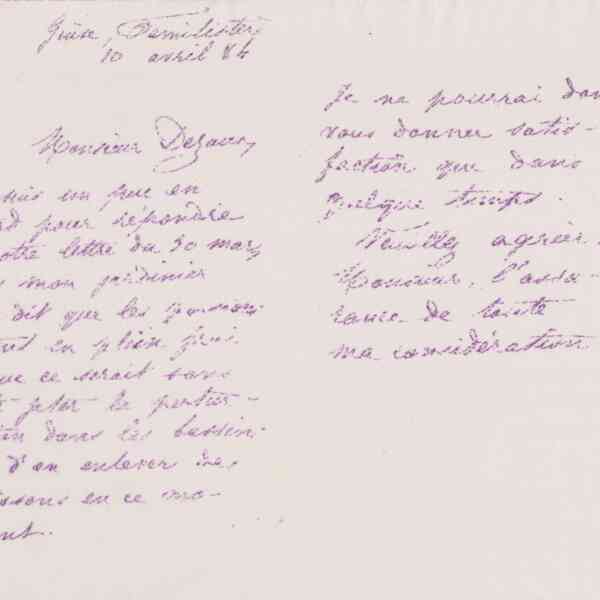 Guise, Familistère
10 avril 84
Monsieur Dezaux,
suis un peu en
rd pour répondre
otre lettre du 30 mars,
mon jardinier
dit que les poissons
en plein frai
ue ce serait sans
jeter la pertur-
on dans les bassins
d'en enlever des
issons en ce mo-
ent.
Je ne pourrai don
vous donner satis-
faction que dans
quelque temps.
Veuillez agréer,
Monsieur, l'assu-
rance de toute
ma considération